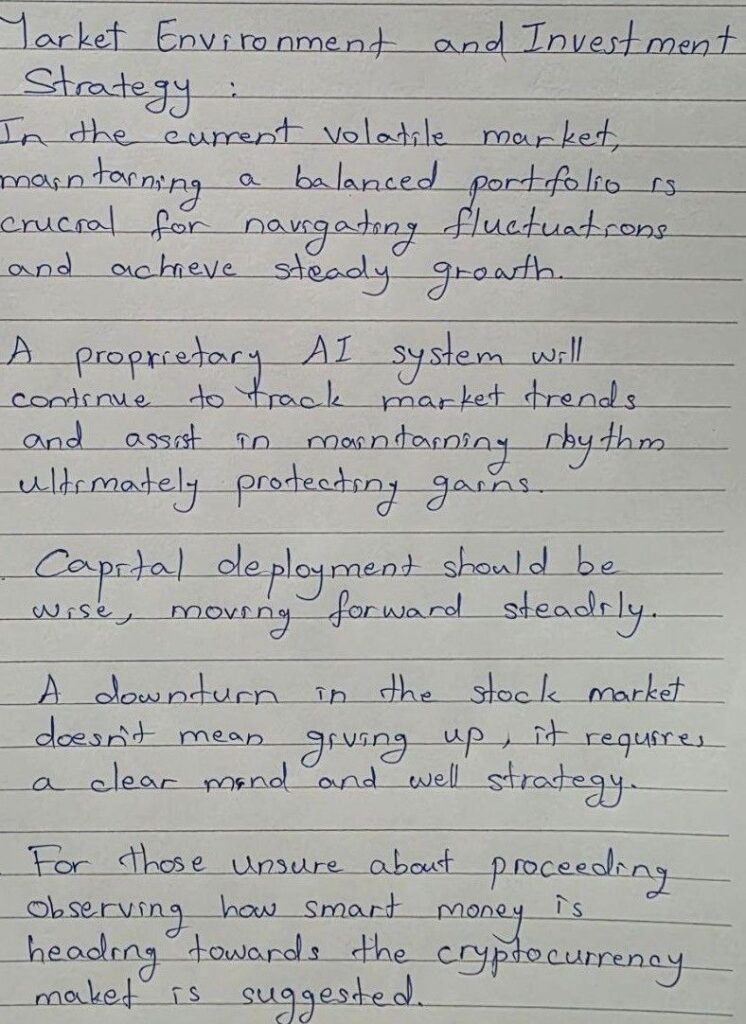 Market Environment and Investment
Strategy :
In the current volatile market,
maintaining a balanced portfolio is
crucial for navigating fluctuations
and achieve steady growth.
A proprietary AI system will
continue to track market trends
and assist in maintaining rhythm
ultimately protecting gains.
Capital deployment should be
wise, moving forward steadily.
A downturn in the stock market
doesn't mean giving up, it requires
a clear mind and well strategy.
For those unsure about proceeding
observing how smart money is
heading towards the cryptocurrency
maket is suggested.